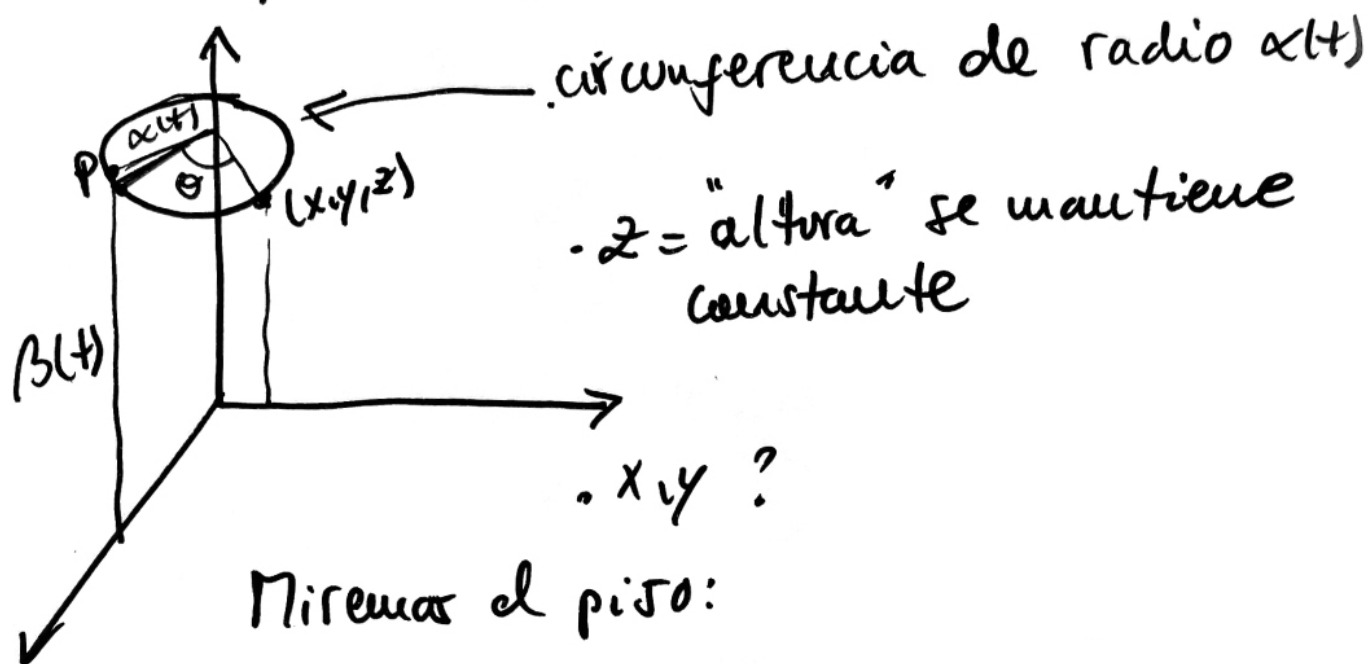 circunferencia de radio α(t)
α(t)
P
θ
(x,y,z)
. z = "altura" se mantiene
constante
β(t)
. x,y ?
Miremos el piso: